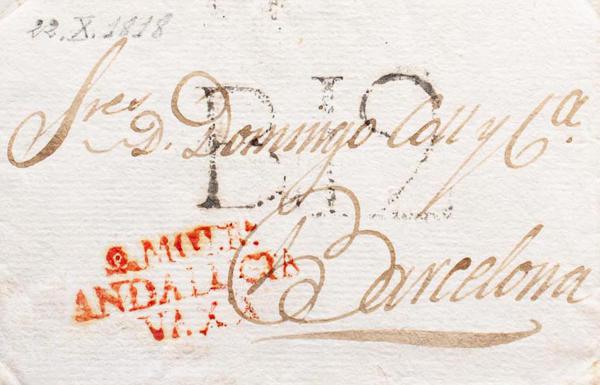 22.X.1818
Sres D. Domingo Coll y Cª
Barcelona
ANDALUCIA